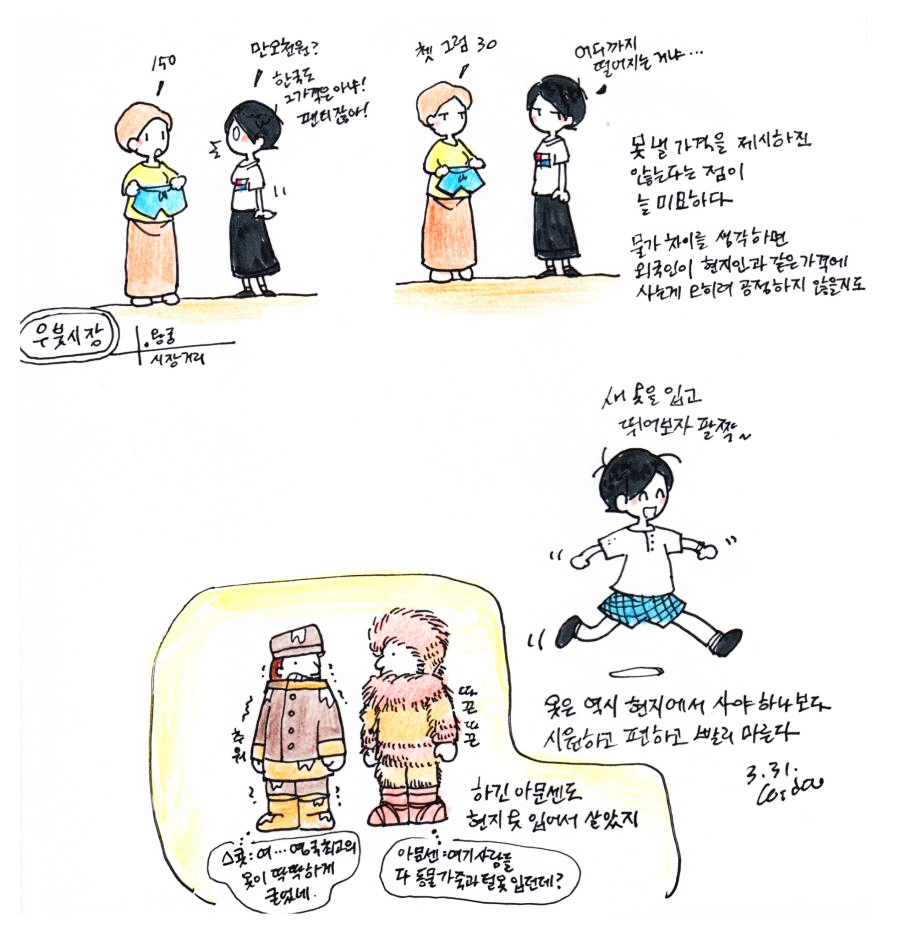 150
만오천원?
한국도
그가격은아냐!
팬티잖아!
헉
쳇 그럼 30
어디까지
떨어지는거냐...
못 낼 가격을 제시하진
않는다는 점이
늘 미묘하다
물가 차이를 생각하면
외국인이 현지인과 같은가격에
사는게 오히려 공정하지 않을지도
우붓시장
왕궁
시장거리
새 옷을 입고
뛰어보자 팔짝~
옷은 역시 현지에서 사야 하나보다
시원하고 편하고 빨리 마른다
3.31.
추워
따끈따끈
하긴 아문센도
현지 옷 입어서 살았지
스콧: 여... 영국최고의
옷이 딱딱하게
굳었네.
아문센: 여기사람들
다 동물가죽과 털옷 입던데?